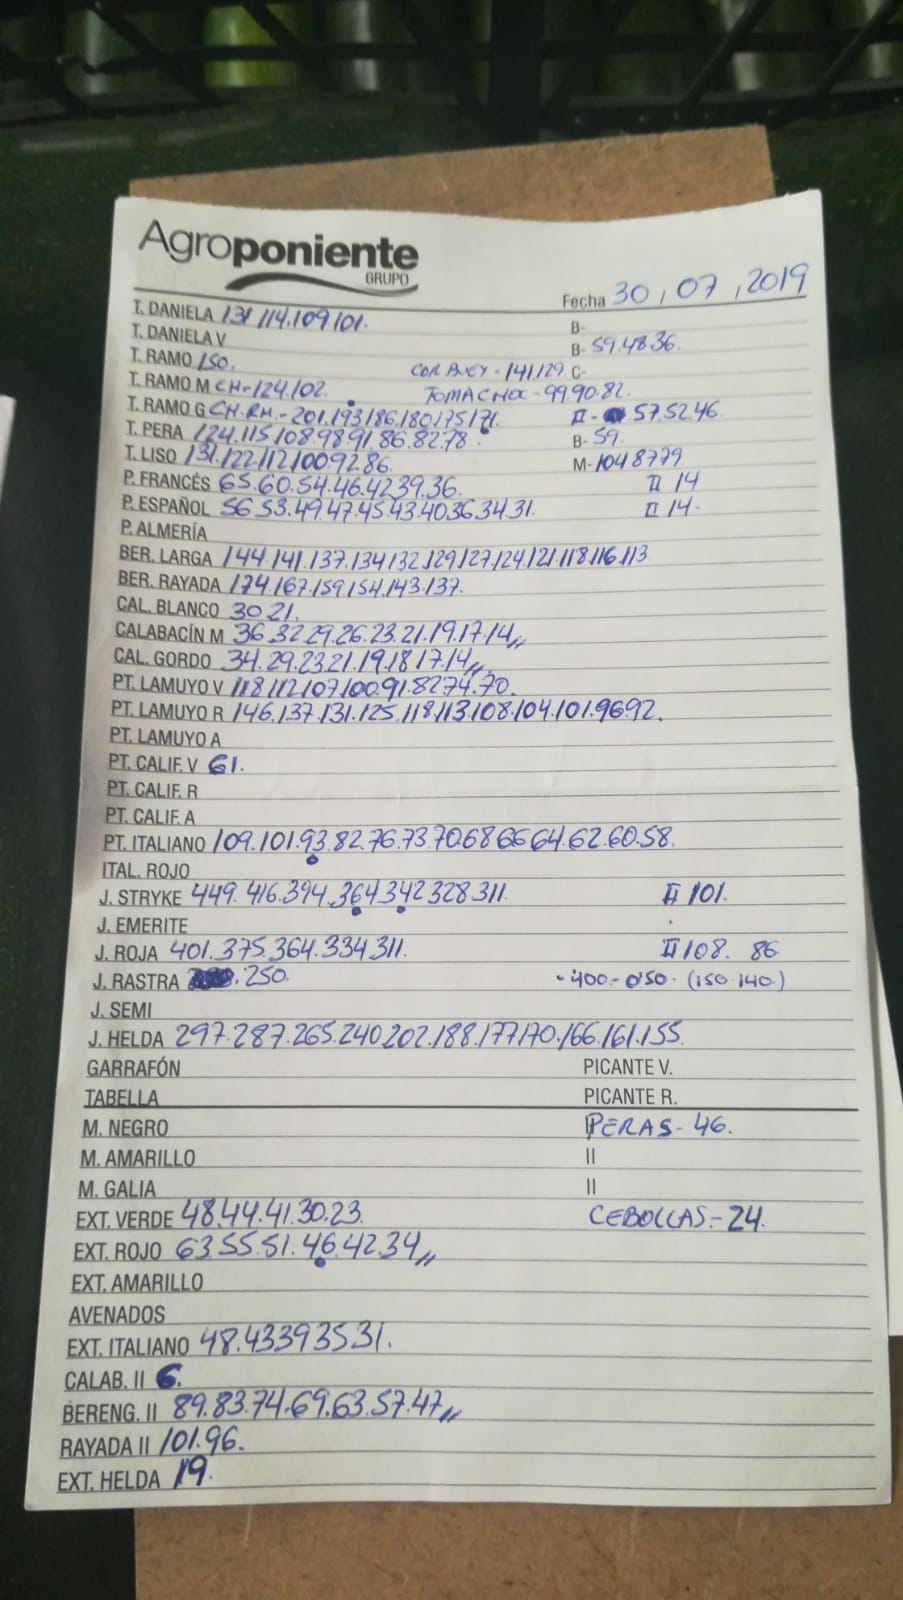 Agroponiente
GRUPO
Fecha 30, 07, 2019
T. DANIELA 131 114.109.101. B-
T. DANIELA V B- 59.48.36.
T. RAMO 150. CORBNEY - 141.129. C-
T. RAMO M CH-124.102. TOMACHOX - 99.90.82.
T. RAMO G CH.RH.- 201.193.186.180.175.171. II- 57.52.46
T. PERA 124.115.108.98.91.86.82.78. B- 59.
T. LISO 131.122.112.100.92.86. M-104.87.79
P. FRANCÉS 65.60.54.46.42.39.36. II 14
P. ESPAÑOL 56.53.49.47.45.43.40.36.34.31. II 14.
P. ALMERÍA
BER. LARGA 144.141.137.134.132.129.127.124.121.118.116.113
BER. RAYADA 174.167.159.154.143.137.
CAL. BLANCO 30.21.
CALABACÍN M 36.32.29.26.23.21.19.17.14,,
CAL. GORDO 34.29.23.21.19.18.17.14,,
PT. LAMUYO V 118.112.107.100.91.82.74.70.
PT. LAMUYO R 146.137.131.125.118.113.108.104.101.96.92.
PT. LAMUYO A
PT. CALIF. V 61.
PT. CALIF. R
PT. CALIF. A
PT. ITALIANO 109.101.93.82.76.73.70.68.66.64.62.60.58.
ITAL. ROJO
J. STRYKE 449.416.394.364.342.328.311. II 101.
J. EMERITE
J. ROJA 401.375.364.334.311. II 108. 86
J. RASTRA .250. -400.-0'50. (150.140.)
J. SEMI
J. HELDA 297.287.265.240.202.188.177.170.166.161.155.
GARRAFÓN PICANTE V.
TABELLA PICANTE R.
M. NEGRO PERAS- 46.
M. AMARILLO II
M. GALIA II
EXT. VERDE 48.44.41.30.23. CEBOLLAS.- 24.
EXT. ROJO 63.55.51.46.42.34,,
EXT. AMARILLO
AVENADOS
EXT. ITALIANO 48.43.39.35.31.
CALAB. II 6.
BERENG. II 89.83.74.69.63.57.47,,
RAYADA II 101.96.
EXT. HELDA 19.